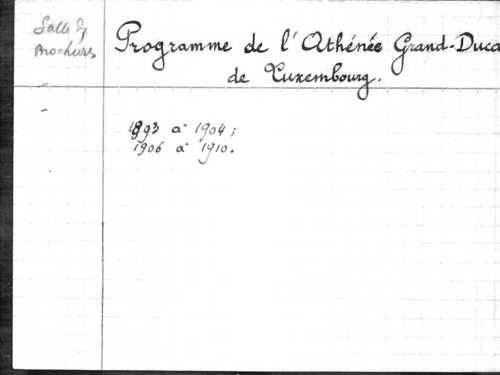 Salle
Brochures
Programme de l'Athénée Grand-Duca
de Luxembourg.
1893 à 1904;
1906 à 1910.